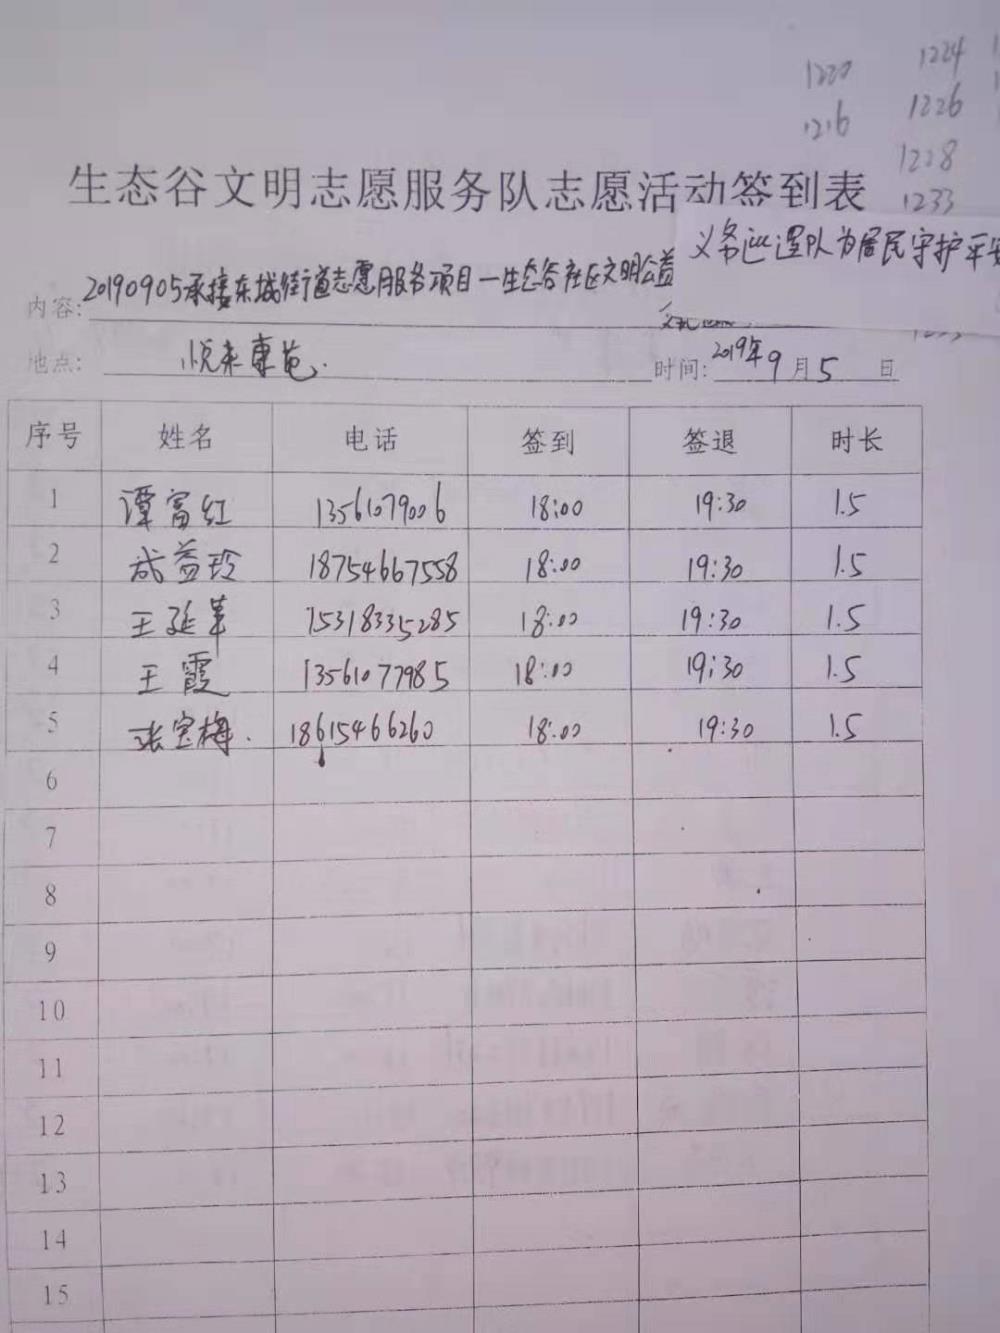 1220 1224
1216 1226
1228
1233
生态谷文明志愿服务队志愿活动签到表
内容: 20190905承接东城街道志愿服务项目—生态谷社区文明公益 义务巡逻队为居民守护平安
地点: 悦来康苑. 时间: 2019年9月5日
序号 姓名 电话 签到 签退 时长
1 谭富红 13561079006 18:00 19:30 1.5
2 成益玲 18754667558 18:00 19:30 1.5
3 王延革 15318335285 18:00 19:30 1.5
4 王霞 13561077985 18:00 19:30 1.5
5 张宝梅. 18615466260 18:00 19:30 1.5
6
7
8
9
10
11
12
13
14
15